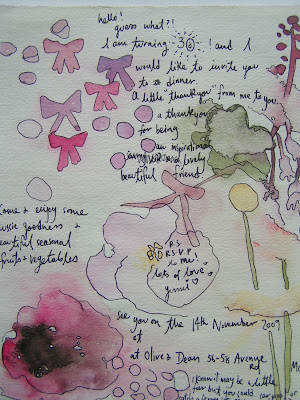 hello!
guess what?!
I am turning 30! and I
would like to invite you
to dinner
a little "thankyou" from me to you.
a thankyou
for being
an inspirational
and lovely
beautiful friend
Come & enjoy some
goodness &
beautiful seasonal
fruits & vegetables
P.S
R.S.V.P
to me!
lots of love
see you on the 14th November 2009
at
at Olive & Dean 54-58 Avenue
Rd
I know it may be a little
far but you could